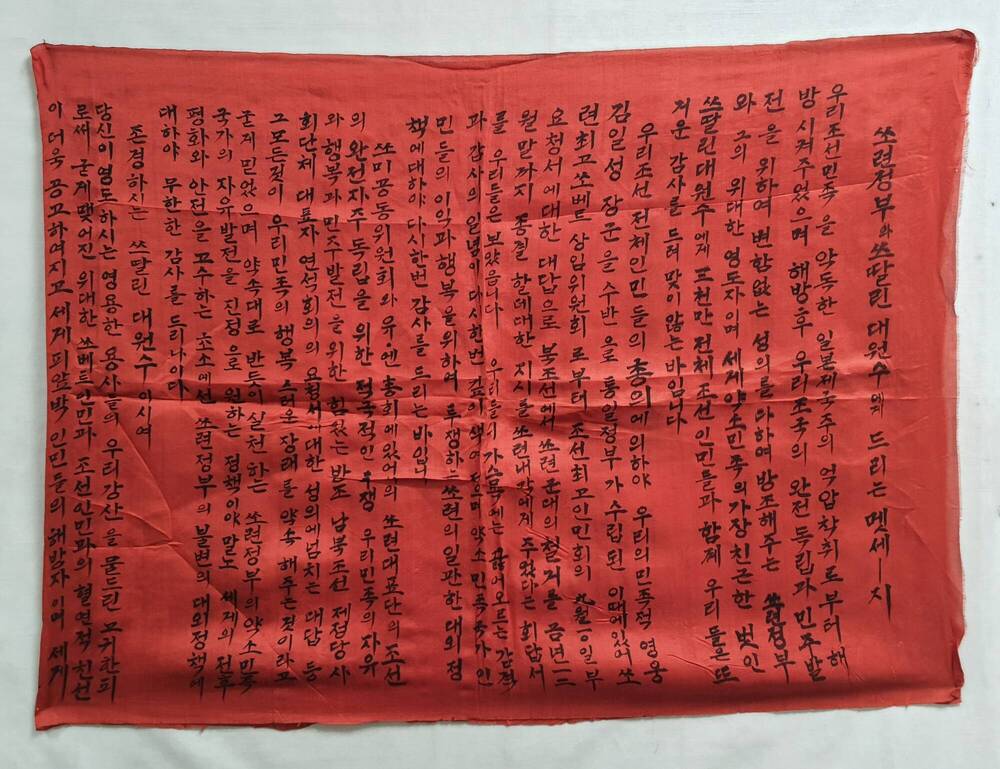 쏘련정부와 쓰딸린 대원수에게 드리는 멧세—지
우리조선민족을 악독한 일본제국주의 억압착취로부터 해
방시켜주었으며 해방후 우리조국의 완전독립과 민주발
전을 위하여 변함없는 성의를 다하여 방조해주는 쏘련정부
와 그의 위대한 영도자이며 세계약소민족의 가장친근한 벗인
쓰딸린대원수에게 三천만 전체조선인민들과 함께 우리들은 뜨
거운 감사를 드려 맞이않는 바입니다
우리조선 전체인민들의 총의에의하야 우리의민족적 영웅
김일성 장군을 수반으로 통일정부가 수립된 이때에있어 쏘
련최고쏘베트 상임위원회로부터 조선최고인민회의 九월一0일부
요청서에대한 대답으로 북조선에서 쏘련군대의 철거를 금년一二
월말까지 종결할데대한 지시를 쏘련내각에게 주었다는 회답서
를 우리들은 보았읍니다 우리들의 가슴속에는 끓어오르는 감격
과 감사의 일념이 다시한번 깊이 색여졌으며 약소민족국가 인
민들의 이익과 행복을위하여 투쟁하는 쏘련의 일관한 대외정
책에대하야 다시한번 감사를 드리는 바입니다
쏘미공동위원회와 유·엔 총회에있어의 쏘련대표단의 조선
의 완전자주독립을 위한 적극적인 투쟁 우리민족의 자유
와 행복과 민주발전을 위한 힘있는 방조 남북조선 제정당사
회단체 대표자 연석회의의 요청서에대한 성의에넘치는 대답 등
그모든것이 우리민족의 행복스러운 장래를 약속해주는것이라고
굳게 믿었으며 약속대로 반듯이 실천하는 쏘련정부의 약소민족
국가의 자유발전을 진정으로 원하는 정책이야말로 세계의 전후
평화와 안전을 고수하는 쏘련정부의 불변의 대외정책에
대하야 무한한 감사를 드리나이다
존경하시는 쓰딸린 대원수이시여
당신이영도하시는 영용한 용사들의 우리강산을 물드린 고귀한피
로써 굳게맺어진 위대한 쏘베트인민과 조선인민과의 혈연적 친선
이 더욱 공고하여지고 세계피압박 인민들의 해방자이며 세계